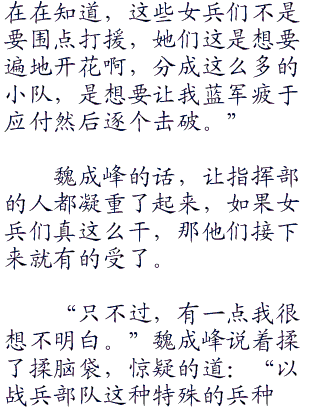 在在知道，这些女兵们不是
要围点打援，她们这是想要
遍地开花啊，分成这么多的
小队，是想要让我蓝军疲于
应付然后逐个击破。”
魏成峰的话，让指挥部
的人都凝重了起来，如果女
兵们真这么干，那他们接下
来就有的受了。
“只不过，有一点我很
想不明白。”魏成峰说着揉
了揉脑袋，惊疑的道：“以
战兵部队这种特殊的兵种